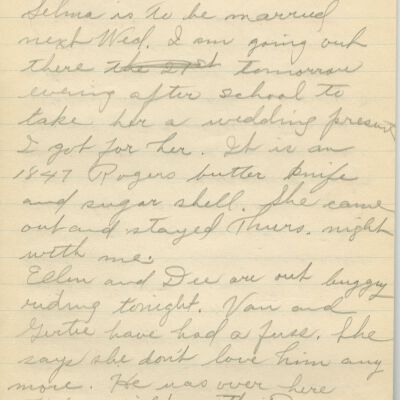 Selma is to be married
next Wed. I am going out
there the 21st tomorrow
evening after school to
take her a wedding present
I got for her. It is an
1847 Rogers butter knife
and sugar shell. She came
out and stayed Thurs. night
with me.
Ellen and Dee are out buggy
riding tonight. Van and
Gertie have had a fuss. She
says she don't love him any
more. He was over here